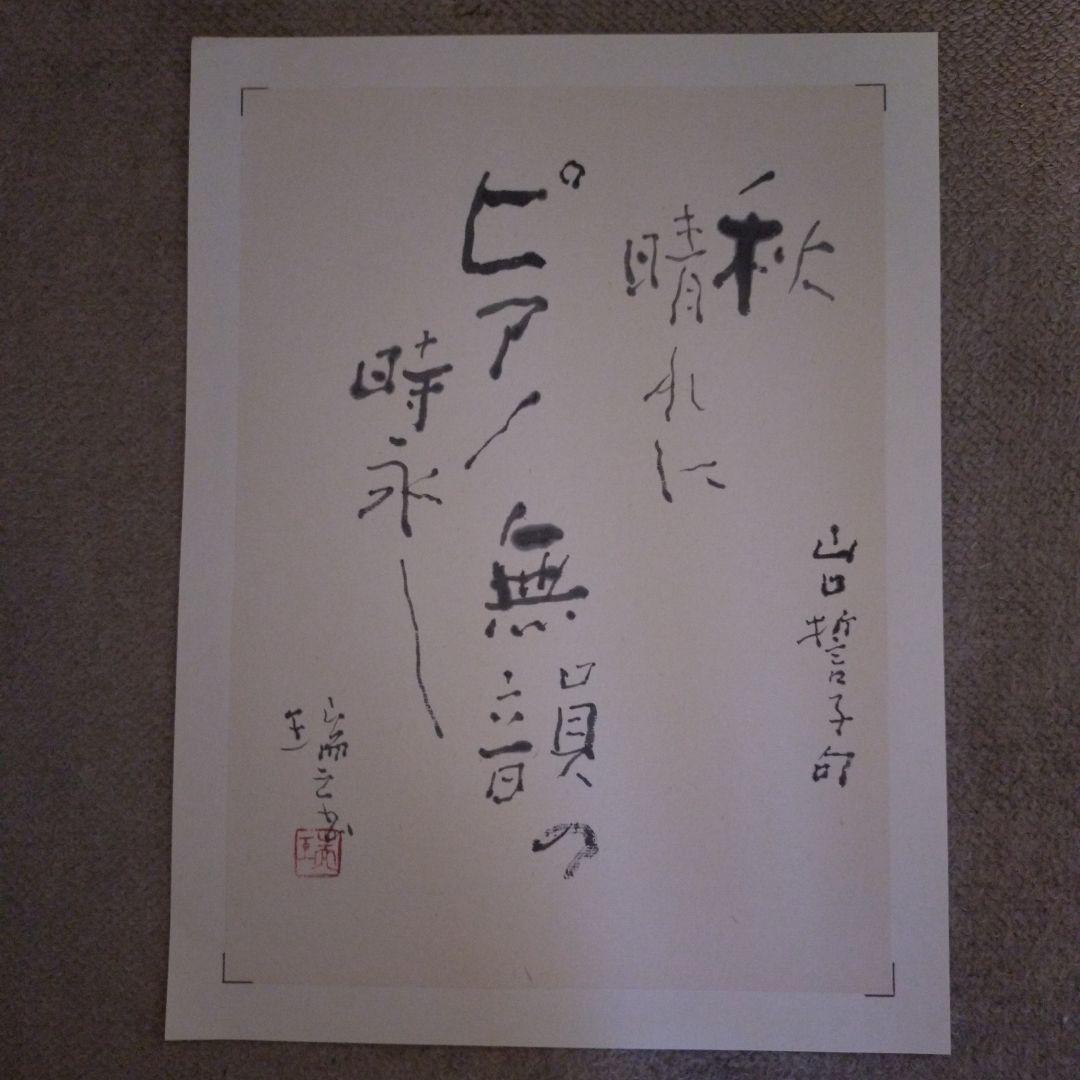 山口誓子句
秋晴れに
ピアノ無韻の
時永し